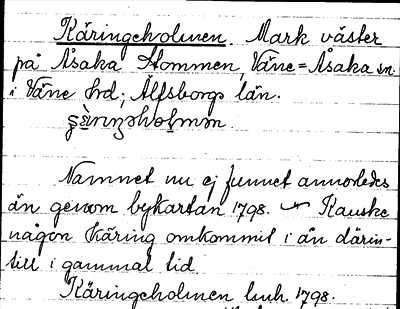 Käringeholmen. Mark väster
på Åsaka Stommen, Väne=Åsaka sn.
i Väne hd; Älfsborgs län.
Namnet nu ej funnet annorledes
än genom bykartan 1798. Kanske
någon käring omkommit i ån därin-
till i gammal tid
Käringeholmen lmh. 1798.